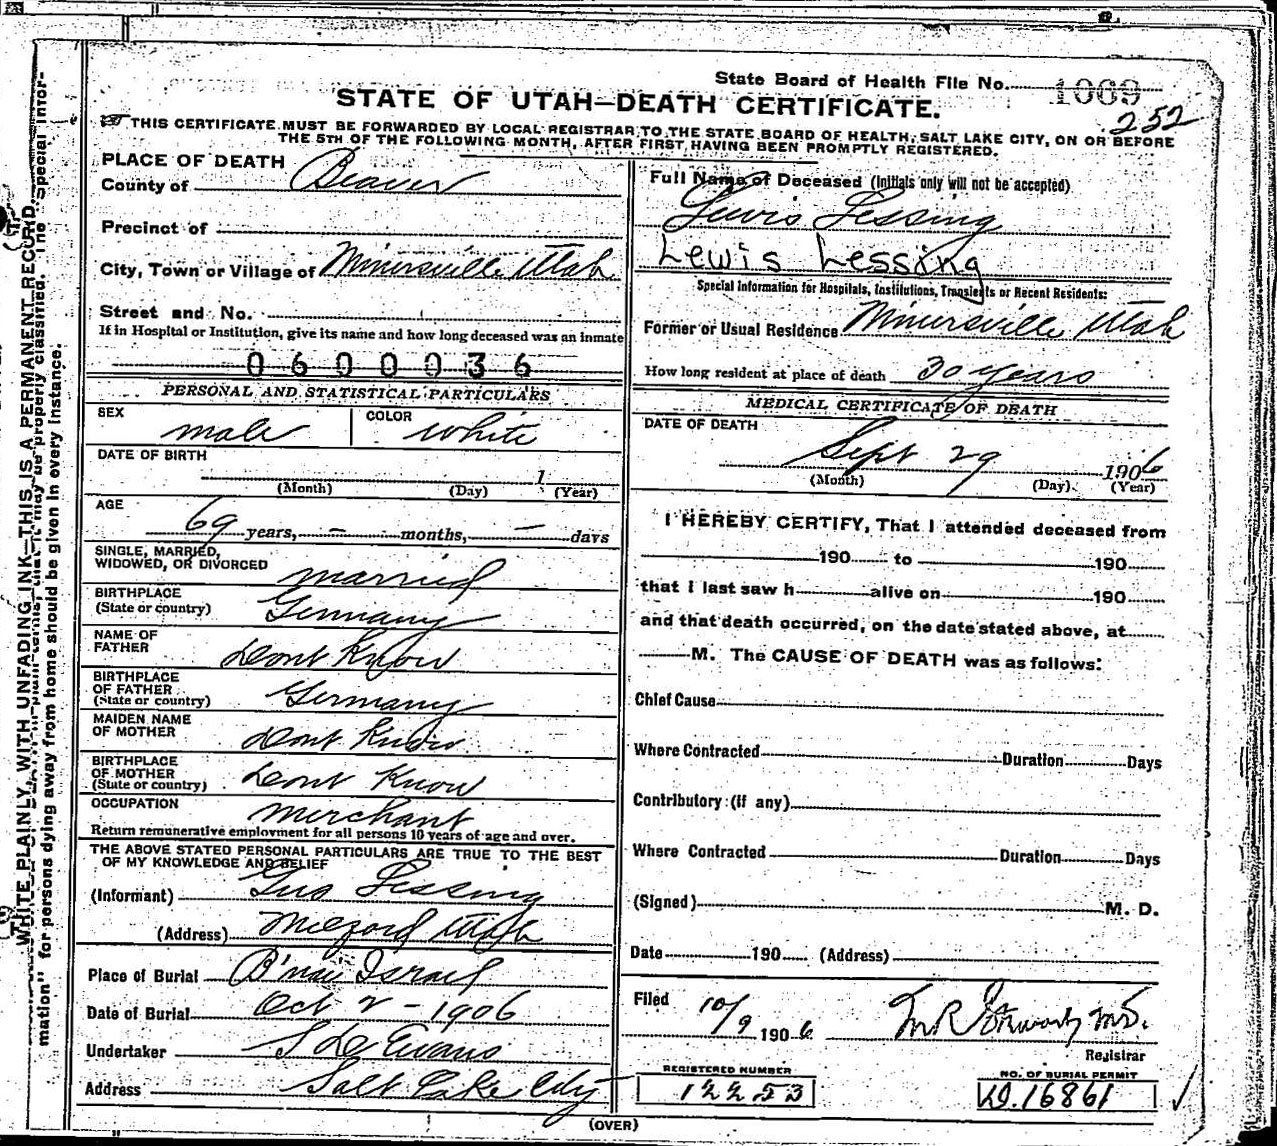 State Board of Health File No. 1069
252
STATE OF UTAH—DEATH CERTIFICATE.
THIS CERTIFICATE MUST BE FORWARDED BY LOCAL REGISTRAR TO THE STATE BOARD OF HEALTH, SALT LAKE CITY, ON OR BEFORE
THE 5TH OF THE FOLLOWING MONTH, AFTER FIRST HAVING BEEN PROMPTLY REGISTERED.
PLACE OF DEATH
County of Beaver
Precinct of
City, Town or Village of Minersville Utah
Street and No.
If in Hospital or Institution, give its name and how long deceased was an inmate
0600036
PERSONAL AND STATISTICAL PARTICULARS
SEX male COLOR white
DATE OF BIRTH
1
(Month) (Day) (Year)
AGE
69 years, — months, — days
SINGLE, MARRIED,
WIDOWED, OR DIVORCED married
BIRTHPLACE
(State or country) Germany
NAME OF
FATHER Dont Know
BIRTHPLACE
OF FATHER
(State or country) Germany
MAIDEN NAME
OF MOTHER Dont Know
BIRTHPLACE
OF MOTHER
(State or country) Dont Know
OCCUPATION merchant
Return remunerative employment for all persons 10 years of age and over.
THE ABOVE STATED PERSONAL PARTICULARS ARE TRUE TO THE BEST
OF MY KNOWLEDGE AND BELIEF
(Informant) Gus Lessing
(Address) Milford Utah
Place of Burial B'nai Israel
Date of Burial Oct 2 - 1906
Undertaker S De Evans
Address Salt Lake City
Full Name of Deceased (Initials only will not be accepted)
Lewis Lessing
Lewis Lessing
Special Information for Hospitals, Institutions, Transients or Recent Residents:
Former or Usual Residence Minersville Utah
How long resident at place of death 30 years
MEDICAL CERTIFICATE OF DEATH
DATE OF DEATH
Sept 29 1906
(Month) (Day) (Year)
I HEREBY CERTIFY, That I attended deceased from
190 to 190
that I last saw h alive on 190
and that death occurred, on the date stated above, at
M. The CAUSE OF DEATH was as follows:
Chief Cause
Where Contracted Duration Days
Contributory (if any)
Where Contracted Duration Days
(Signed) M. D.
Date 190 (Address)
Filed 10/9 1906
Registrar
REGISTERED NUMBER
12253
NO. OF BURIAL PERMIT
16861
(OVER)
WRITE PLAINLY, WITH UNFADING INK—THIS IS A PERMANENT RECORD.
properly classified. The "Special Infor-
mation" for persons dying away from home should be given in every instance.